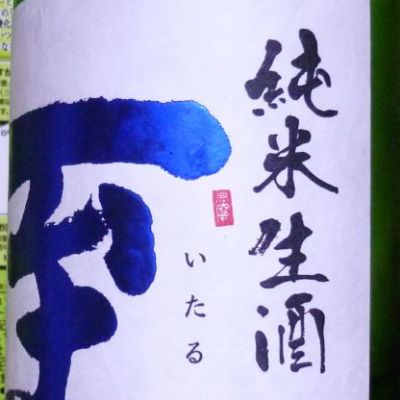 純米生酒
いたる
至